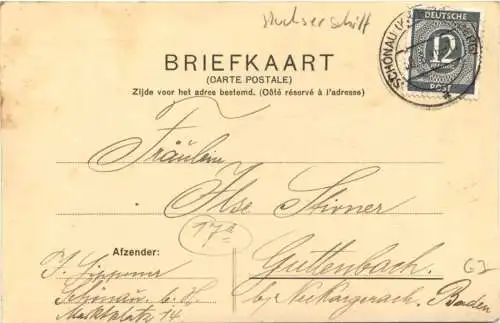 DEUTSCHE
12
POST
SCHÖNAU
BRIEFKAART
(CARTE POSTALE)
Zijde voor het adres bestemd. (Côté réservé à l'adresse)
Fräulein
Ilse Stirner
17a
Afzender:
Guttenbach.
G2
Schönau b. H.
Marktplatz 14
bei Neckargerach. Baden